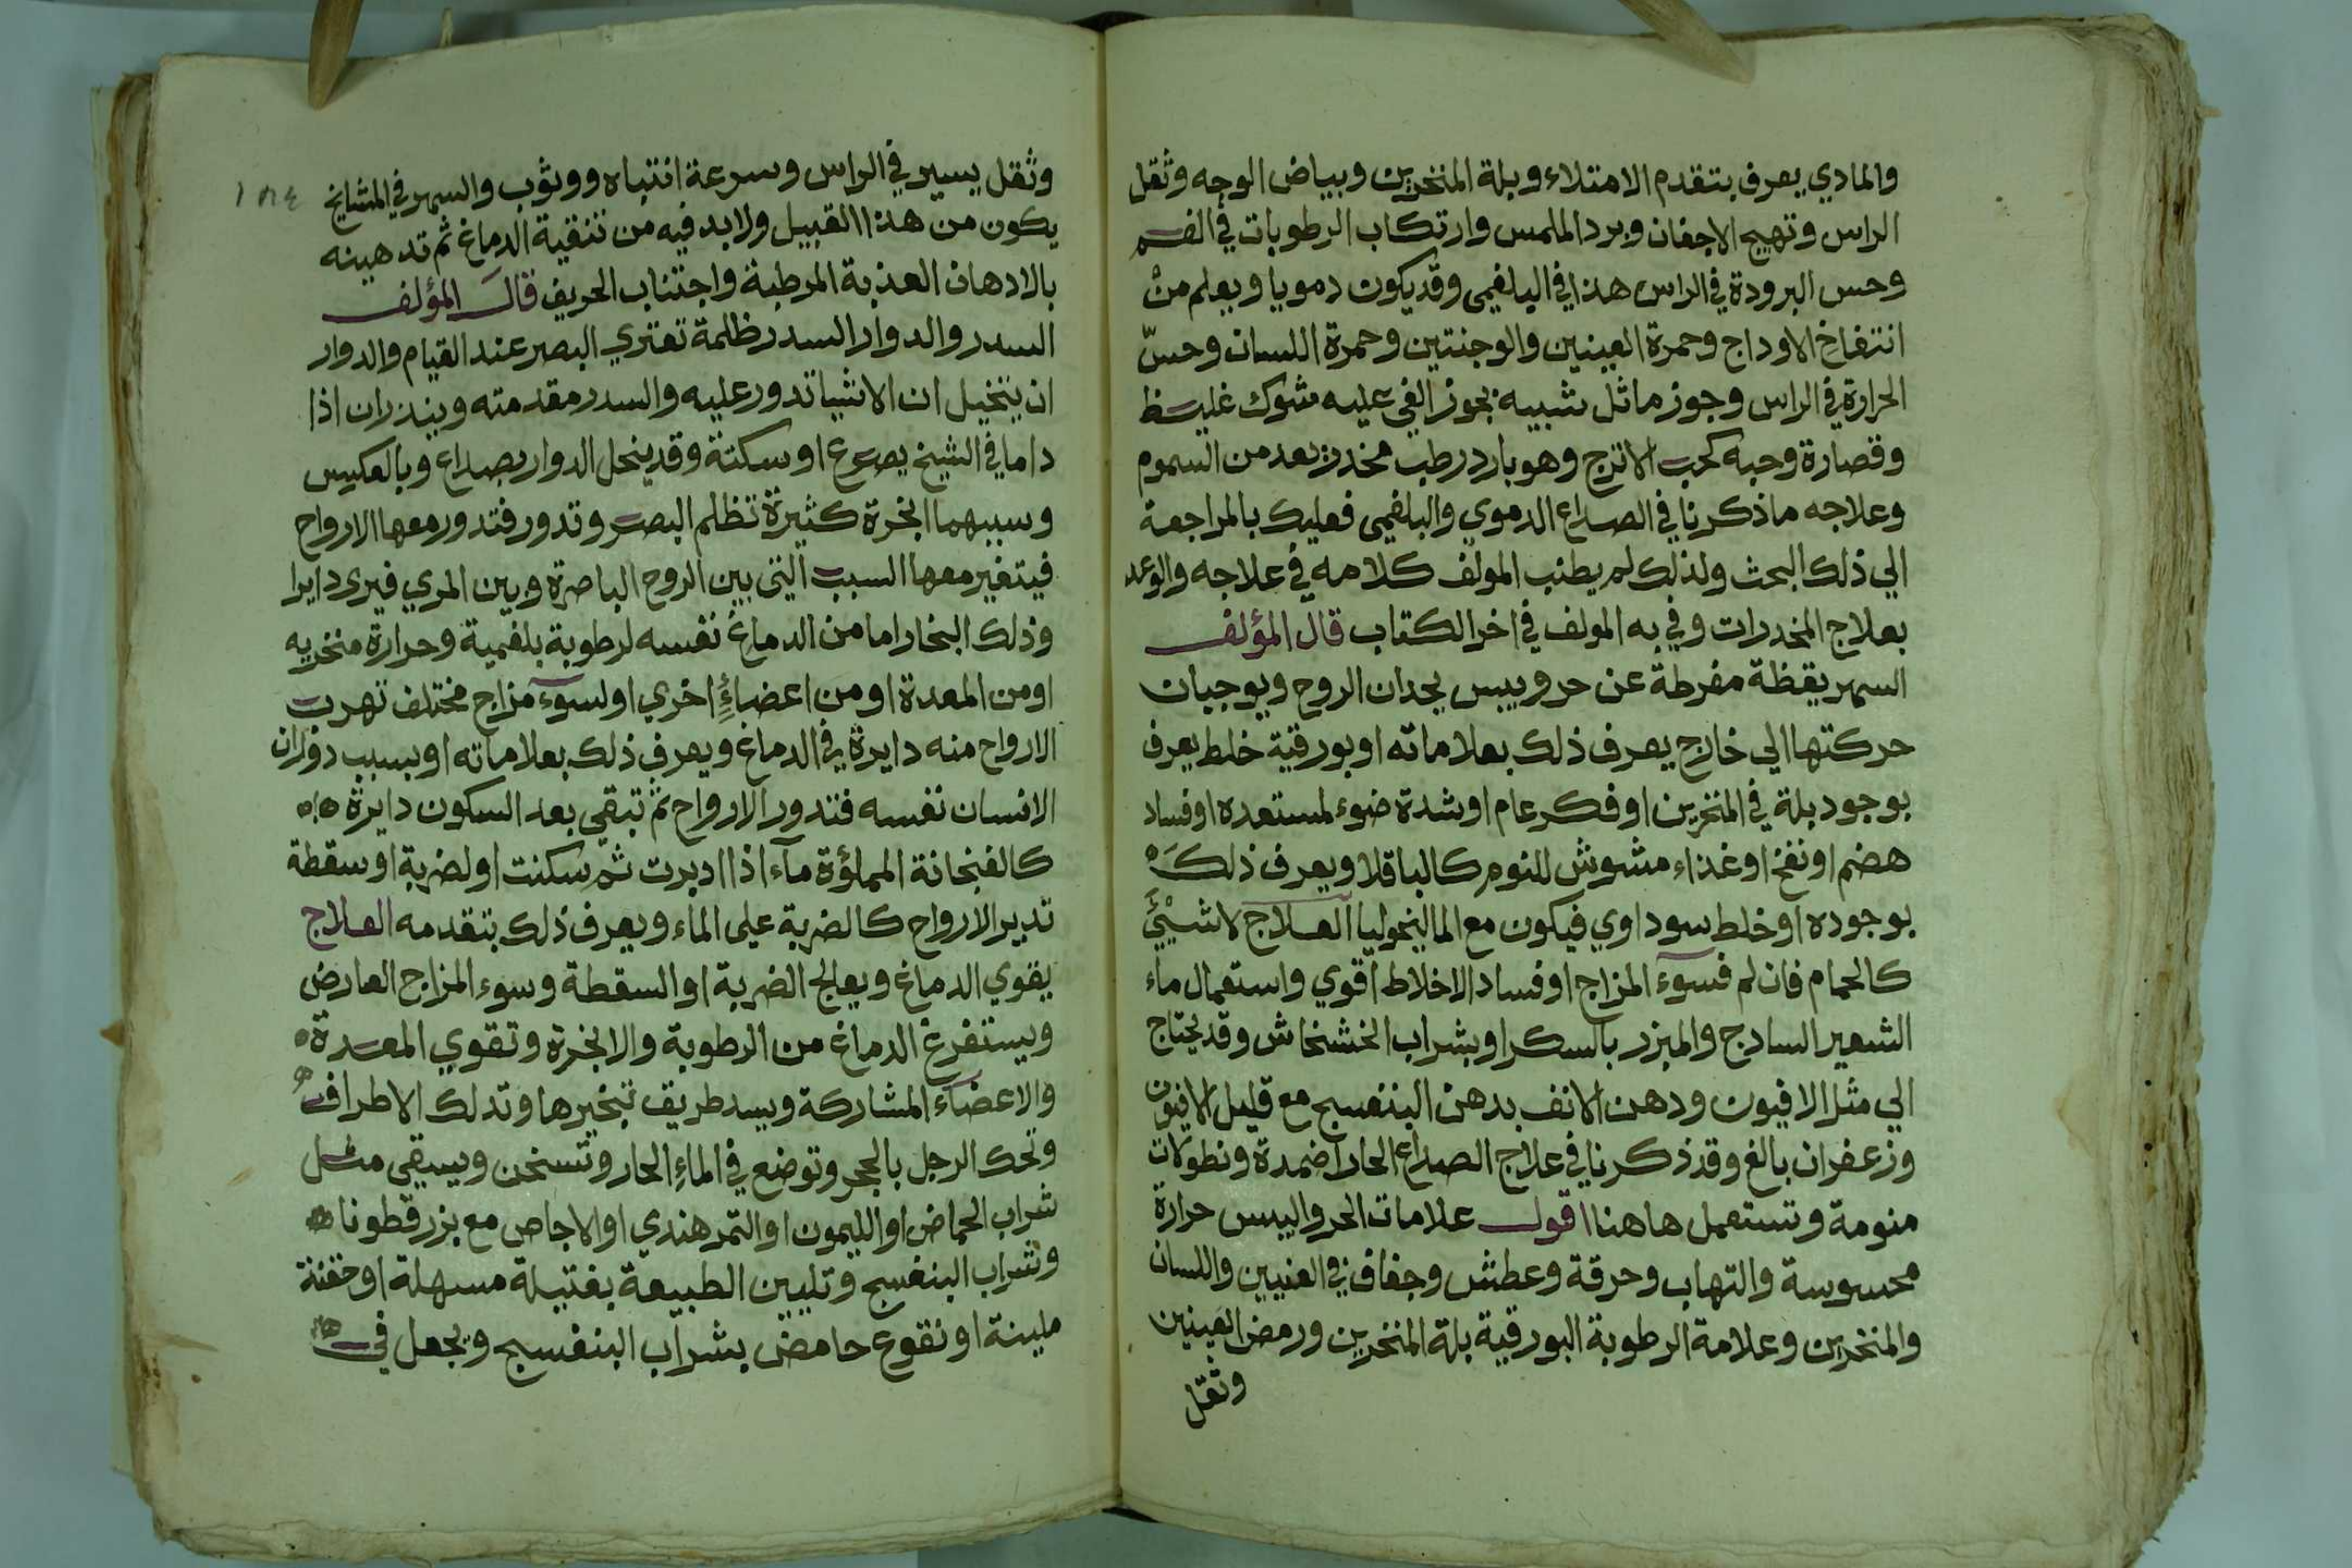 والمادي يعرف بتقدم الامتلاء وبلة المنخرين وبياض الوجه وثقل
الراس وتهيج الاجفان وبرد الملمس وارتكاب الرطوبات في الفم
وحس البرودة في الراس هذا في البلغمي وقد يكون دمويا ويعلم من
انتفاخ الاوداج وحمرة العينين والوجنتين وحمرة اللسان وحسّ
الحرارة في الراس وجوز ماثل شبيه بجوز القي عليه شوك غليظ
وقصارة وحبه كحب الاترج وهو بارد رطب مخدر يعد من السموم
وعلاجه ما ذكرنا في الصداع الدموي والبلغمي فعليك بالمراجعة
الي ذلك البحث ولذلك لم يطنب المولف كلامه في علاجه والوعد
بعلاج المخدرات وفي به المولف في اخر الكتاب قال المؤلف
السهر يقظة مفرطة عن حر ويبس يحدان الروح ويوجبان
حركتها الي خارج يعرف ذلك بعلاماته او بورقية خلط يعرف
بوجود بلة في المنخرين او فكر عام او شدة ضوء لمستعده او فساد
هضم او نفخ او غذاء مشوش للنوم كالباقلا ويعرف ذلك
بوجوده او خلط سوداوي فيكون مع الماليخوليا العلاج لا شيئ
كالحمام فان لم فسوء المزاج او فساد الاخلاط اقوي واستعمال ماء
الشعير السادج والمبزر بالسكر او بشراب الخشخاش وقد يحتاج
الي مثل الافيون ودهن الانف بدهن البنفسج مع قليل الافيون
وزعفران بالغ وقد ذكرنا في علاج الصداع الحار اضمدة ونطولات
منومة وتستعمل هاهنا اقول علامات الحر واليبس حرارة
محسوسة والتهاب وحرقة وعطش وجفاف في العنيين واللسان
والمنخرين وعلامة الرطوبة البورقية بلة المنخرين ورمض العينين
وثقل
١٨٤
وثقل يسير في الراس وسرعة انتباه ووثوب والسهر في المشايخ
يكون من هذا القبيل ولا بد فيه من تنقية الدماغ ثم تدهينه
بالادهان العذبة المرطبة واجتناب الحريف قال المؤلف
السدر والدوار السدر ظلمة تعتري البصر عند القيام والدوار
ان يتخيل ان الاشيا تدور عليه والسدر مقدمته وينذران اذا
داما في الشيخ بصرع او سكتة وقد ينحل الدوار بصداع وبالعكس
وسببهما ابخرة كثيرة تظلم البصر وتدور فتدور معها الارواح
فيتغير معها السبب التي بين الروح الباصرة وبين المري فيرى دايرا
وذلك البخار اما من الدماغ نفسه لرطوبة بلغمية وحرارة منخريه
او من المعدة او من اعضاءٍ اخري او لسوء مزاج مختلف تهرب
الارواح منه دايرة في الدماغ ويعرف ذلك بعلاماته او بسبب دوران
الانسان نفسه فتدور الارواح ثم تبقي بعد السكون دايرة
كالفنجانة المملؤة مآء اذا اديرت ثم سكنت او لضربة او سقطة
تدير الارواح كالضربة على الماء ويعرف ذلك بتقدمه العلاج
يقوي الدماغ ويعالج الضربة او السقطة وسوء المزاج العارض
ويستفرغ الدماغ من الرطوبة والابخرة وتقوي المعدة
والاعضآء المشاركة ويسد طريق تبخيرها وتدلك الاطراف
وتحك الرجل بالحجر وتوضع في الماءِ الحار وتسخن ويسقي مثل
شراب الحماض او الليمون او التمر هندي او الاجاص مع بزر قطونا
وشراب البنفسج وتليين الطبيعة بفتيلة مسهلة او حقنة
ملينة او نقوع حامض بشراب البنفسج ويجعل في